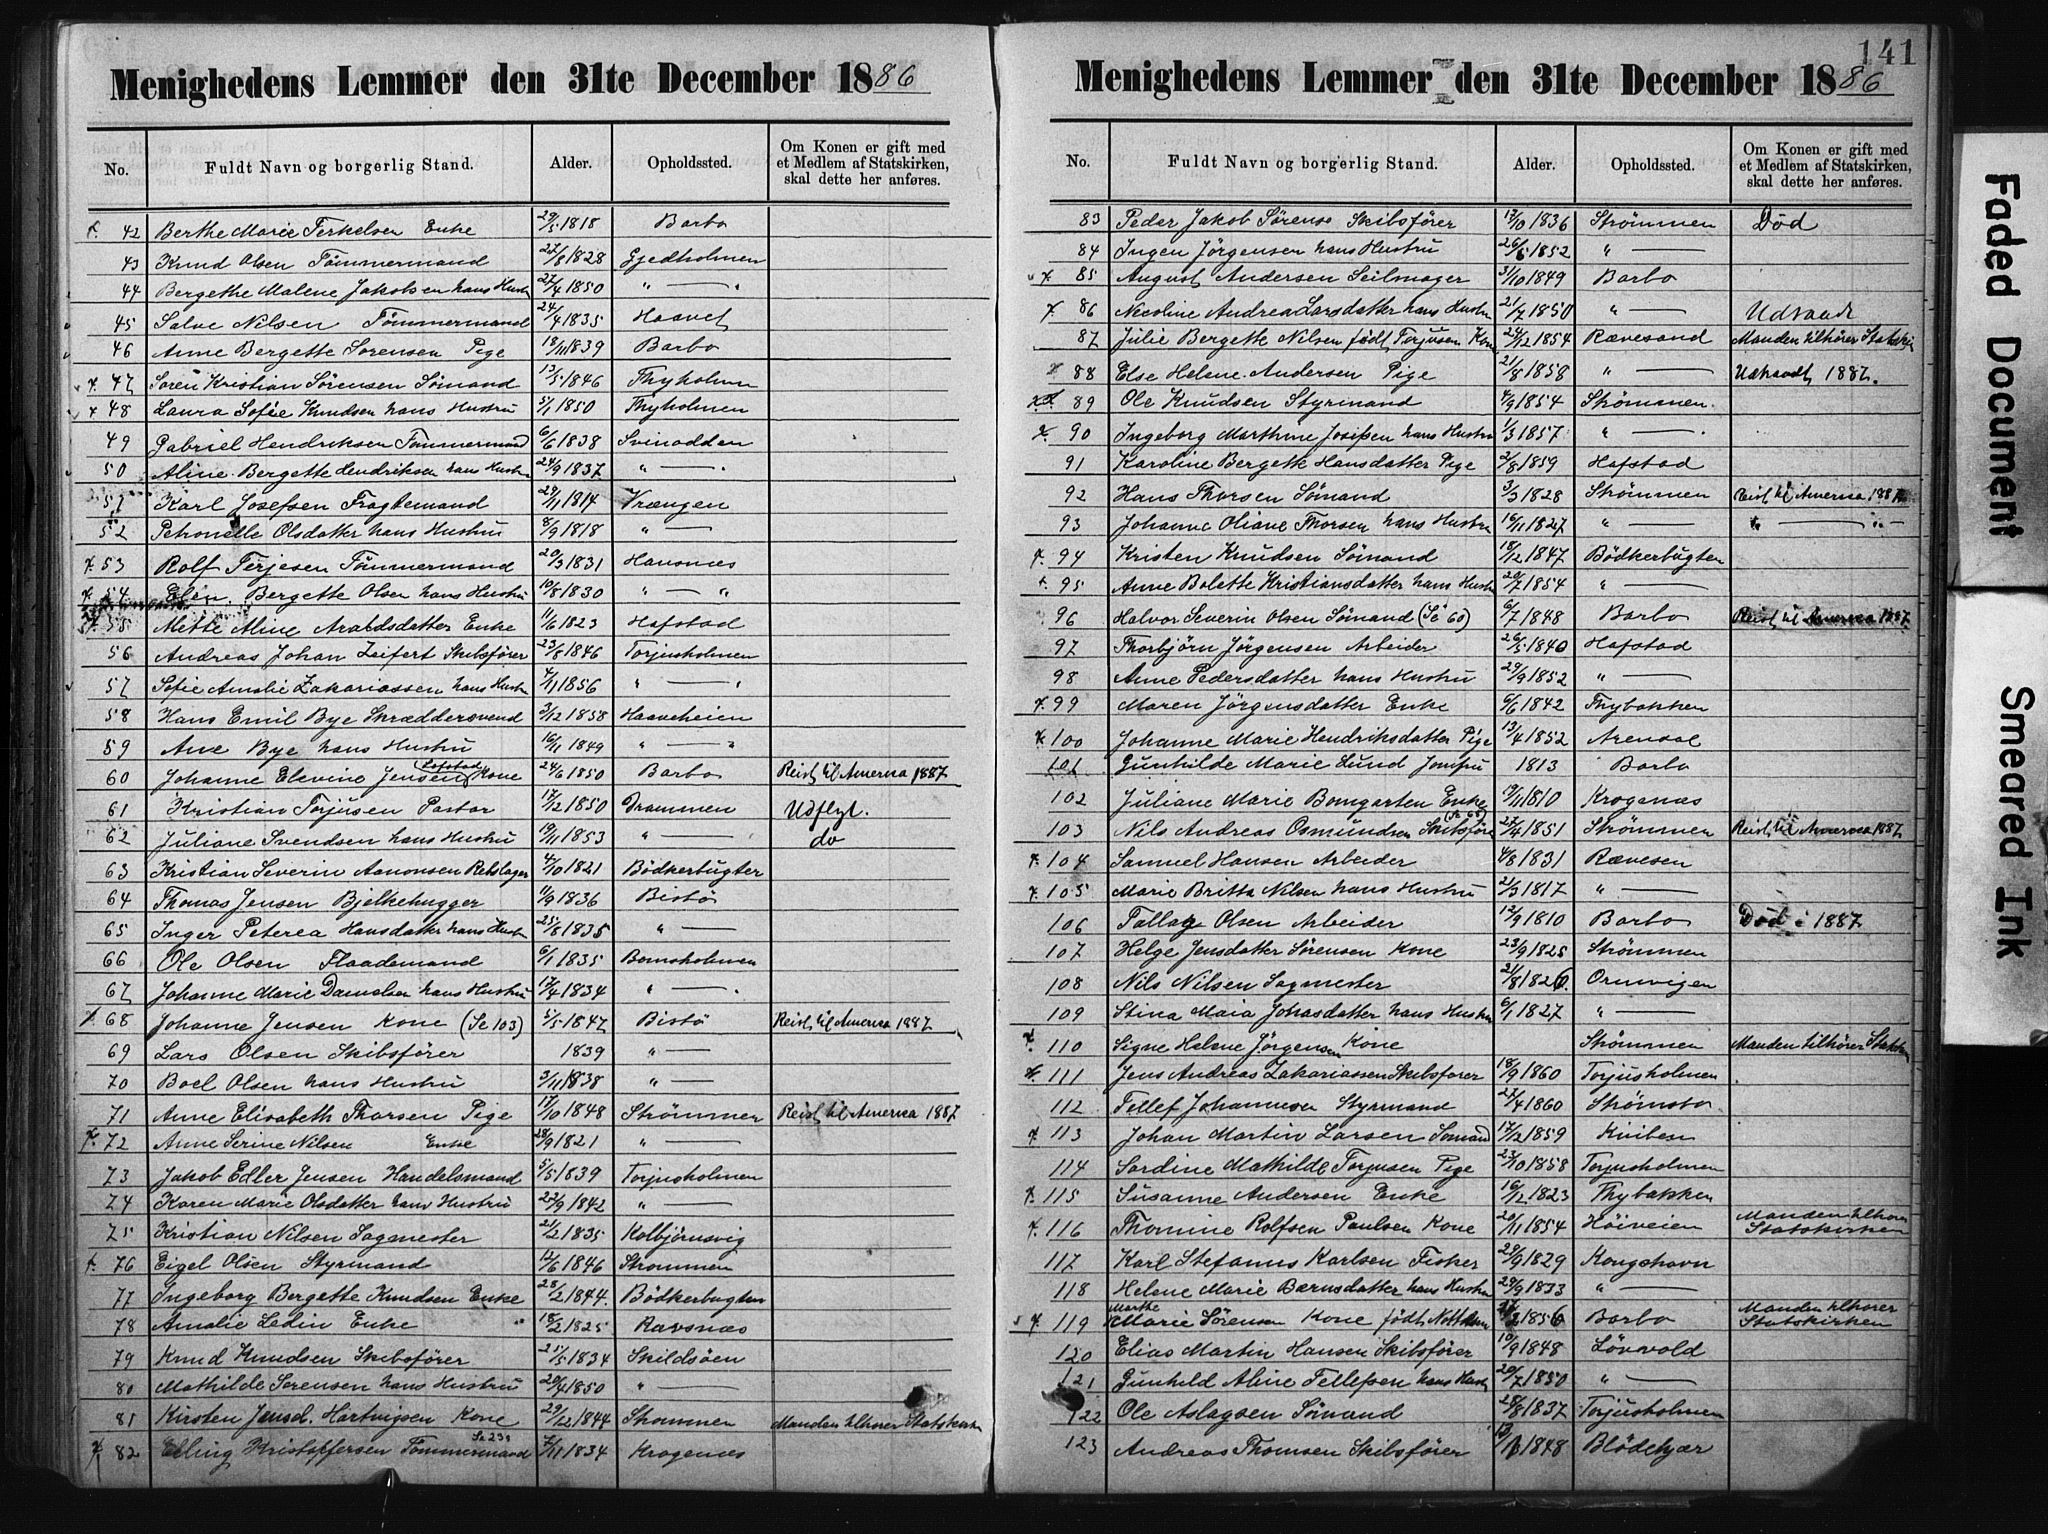 Menighedens Lemmer den 31te December 1886
No. Fuldt Navn og borgerlig Stand. Alder. Opholdssted. Om Konen er gift med et Medlem af Statskirken, skal dette her anføres.
42 Berthe Marie Terkelsen Enke 29/5 1818 Barbo
43 Knud Olsen Tømmermand 27/8 1828 Gjedholmen
44 Bergethe Malene Jakobsen hans Hustru 27/4 1850 " — "
45 Salve Nilsen Tømmermand 24/4 1835 Haavet
46 Anne Bergette Sørensen Pige 18/11 1839 Barbo
47 Søren Kristian Sørensen Sømand 13/5 1846 Thyholmen
48 Laura Sofie Knudsen hans Hustru 5/1 1850 Thyholmen
49 Gabriel Hendriksen Tømmermand 6/6 1838 Svinodden
50 Aline Bergette Hendriksen hans Hustru 24/9 1837 " — "
51 Karl Josefsen Fragtemand 29/11 1814 Vrængen
52 Petronelle Olsdatter hans Hustru 8/9 1818 " —
53 Rolf Terjesen Tømmermand 20/3 1831 Havsnæs
54 Elen Bergette Olsen hans Hustru 10/8 1830 " — "
55 Mette Aline Aralddsdatter Enke 11/6 1823 Hafstad
56 Andreas Johan Zeifert Skibsfører 23/8 1846 Torjusholmen
57 Sofie Amalie Zakariassen hans Hustru 4/11 1856 " — "
58 Hans Emil Bye Skræddersvend 3/12 1858 Haaveheien
59 Ane Bye hans Hustru 16/11 1849 " — "
60 Johanne Elevine Jensen Kone 24/6 1850 Barbo Reist til Amerika 1887
61 Kristian Torjusen Pastor 17/12 1850 Drammen Udflyt.
62 Juliane Svendsen hans Hustru 19/11 1853 " — do
63 Kristian Severin Aanonsen Rebslager 4/10 1821 Bødkerbugten
64 Thomas Jensen Bjelkehugger 11/9 1836 Bistø
65 Inger Peterea Hansdatter hans Hustru 25/8 1835 " —
66 Ole Olsen Flaademand 6/1 1835 Bomsholmen
67 Johanne Marie Danielsen hans Hustru 17/4 1834 " — "
68 Johanne Jensen Kone (Se 103) 5/5 1847 Bistø Reist til Amerika 1887
69 Lars Olsen Skibsfører 1839 " —
70 Boel Olsen hans Hustru 3/11 1838 " —
71 Anne Elisabeth Thorsen Pige 17/10 1848 Strømmen Reist til Amerika 1887
72 Anne Serine Nilsen Enke 28/9 1821 " —
73 Jakob Edler Jensen Handelsmand 5/5 1839 Torjusholmen
74 Karen Marie Olsdatter hans Hustru 22/9 1842 " —
75 Kristian Nilsen Sagmester 21/2 1835 Kolbjørnsvig
76 Eigel Olsen Styrmand 12/6 1846 Strømmen
77 Ingeborg Bergette Knudsen Enke 28/2 1844 Bødkerbugten
78 Amalie Ledin Enke 18/2 1825 Ravsnæs
79 Knud Knudsen Skibsfører 21/5 1834 Skildsøen
80 Mathilde Sørensen hans Hustru 20/4 1850 " —
81 Kirsten Jensd. Hartvigsen Kone 29/12 1844 Strømmen Manden tilhører Statskirken
82 Elling Kristoffersen Tømmermand 7/11 1834 Krogenæs
141
Menighedens Lemmer den 31te December 1886
No. Fuldt Navn og borgerlig Stand. Alder. Opholdssted. Om Konen er gift med et Medlem af Statskirken, skal dette her anføres.
83 Peder Jakob Sørens Skibsfører 13/10 1836 Strømmen Død
84 Ingen Jørgensen hans Hustru 26/6 1852 " —
85 August Andersen Seilmager 31/10 1849 Barbo
86 Nicoline Andrea Larsdatter hans Hustru 21/7 1850 " — Udtraadt
87 Julie Bergette Nilsen født Torjusen Kone 24/12 1854 Rævesand Manden tilhører Statski
88 Else Helene Andersen Pige 21/8 1858 " — Udtraadt 1887.
89 Ole Knudsen Styrmand 4/9 1854 Strømmen
90 Ingeborg Marthine Josefsen hans Hustru 1/3 1857 " —
91 Karoline Bergette Hansdatter Pige 2/8 1859 Hafstad
92 Hans Thorsen Sømand 3/3 1828 Strømmen Reist til Amerika 1887
93 Johanne Oliane Thorsen hans Hustru 16/11 1827 " — " — "
94 Kristen Knudsen Sømand 18/12 1847 Bødkerbugten
95 Anne Bolette Kristiansdatter hans Hustru 20/7 1854 " —
96 Halvor Severin Olsen Sømand (Se 60) 6/7 1848 Barbo Reist til Amerika 1887
97 Thorbjørn Jørgensen Arbeider 26/5 1840 Hafstad
98 Anne Pedersdatter hans Hustru 29/9 1852 " —
99 Maren Jørgensdatter Enke 6/6 1842 Thybakken
100 Johanne Marie Hendriksdatter Pige 13/4 1852 Arendal
101 Gunhilde Marie Lund Jomfru 1813 Barbo
102 Juliane Marie Bomgarten Enke 19/11 1810 Krogenæs
103 Nils Andreas Osmundsen Skibsføre (Se 68) 27/4 1851 Strømmen Reist til Amerika 1887
104 Samuel Hansen Arbeider 4/8 1831 Rævesen
105 Marie Britta Nilsen hans Hustru 21/3 1817 " —
106 Tallag Olsen Arbeider 12/9 1810 Barbo Død i 1887
107 Helge Jensdatter Sørensen Kone 23/9 1825 Strømmen
108 Nils Nilsen Sagmester 21/8 1826 Ormvigen
109 Stina Maia Johasdatter hans Hustru 6/1 1827 " —
110 Signe Helene Jørgensen Kone Strømmen Manden tilhører Statskir
111 Jens Andreas Zakariassen Skibsfører 18/9 1860 Torjusholmen
112 Tellef Johannesen Styrmand 27/4 1860 Strømsbo
113 Johan Martin Larsen Sømand 17/12 1859 Kvibesn
114 Sordine Mathilde Torjusen Pige 23/10 1858 Torjusholmen
115 Susanne Andersen Enke 16/12 1823 Thybakken
116 Thomine Rolfsen Paulsen Kone 20/11 1854 Høiveien Manden tilhører Statskirken
117 Karl Stefanus Karlsen Fisker 29/9 1829 Kongshavn
118 Helene Marie Bærnsdatter hans Hustru 29/9 1833 " —
119 Marthe Marie Sørensen Kone født 1856 Barbo Manden tilhører Statskirken
120 Elias Martin Hansen Skibsfører 10/9 1848 Løvvold
121 Gunhild Aline Tellefsen hans Hustr 20/7 1850 " —
122 Ole Aslagsen Sømand 28/8 1837 Torjusholmen
123 Andreas Thomsen Skibsfører 1848 Blødekjær
Faded Document
Smeared Ink